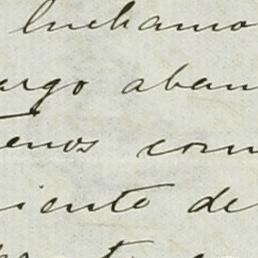 luchamo
argo aban
enos com
iento de